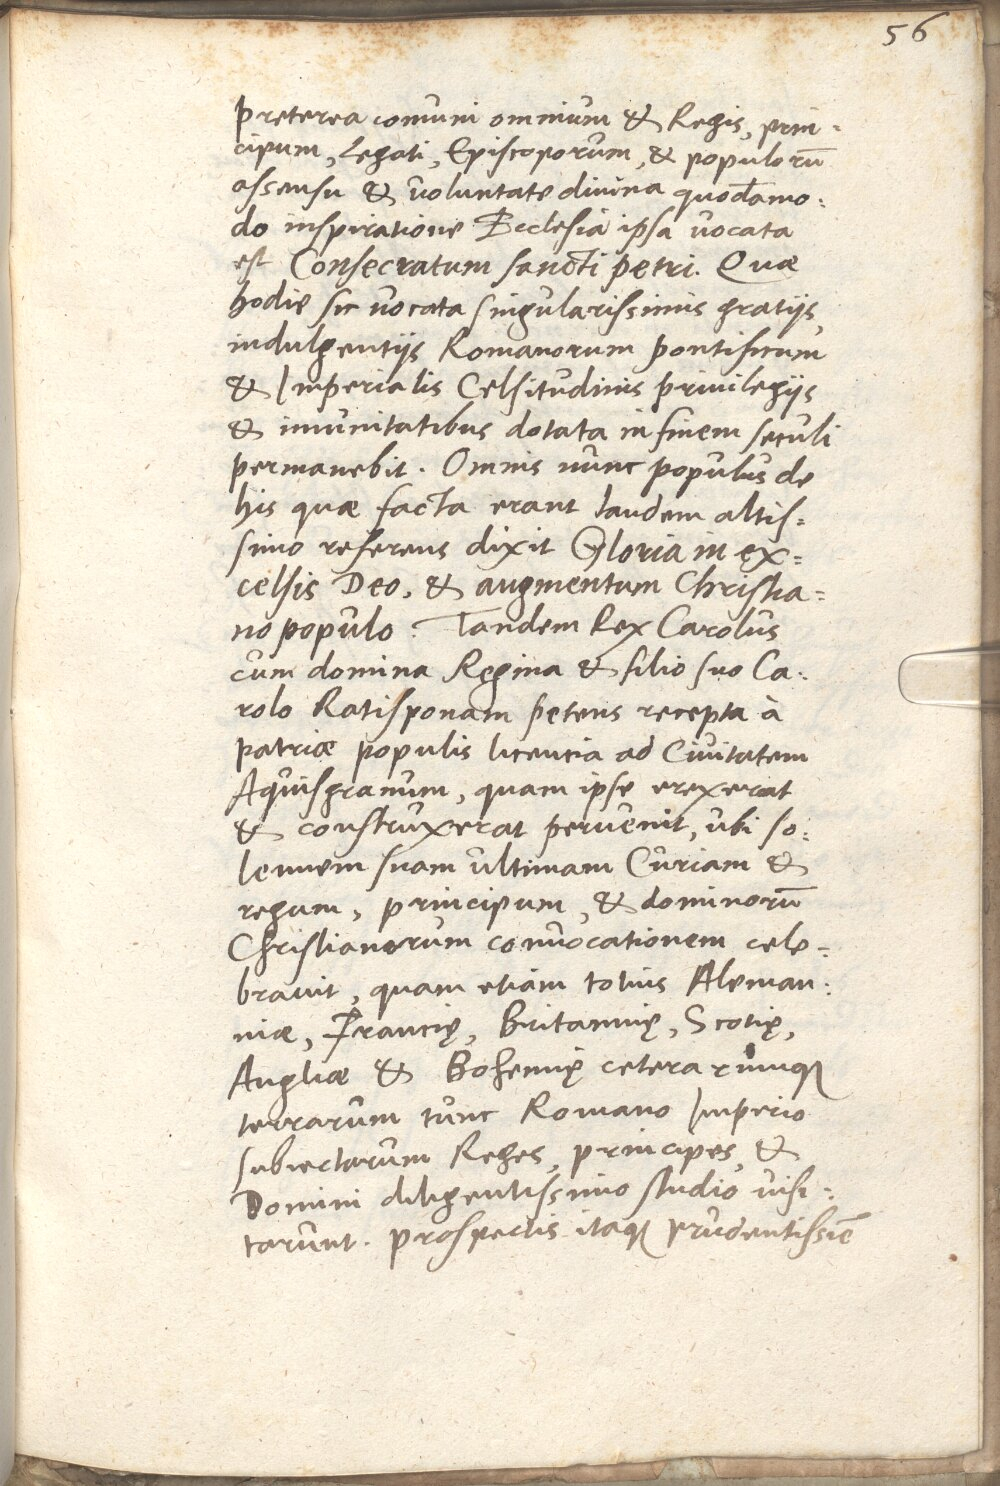 56
preterea comuni omnium & Regis, prin-
cipum, Legati, Episcoporum, & populorū
assensu & voluntate divina quodāmo-
do inspiratione Ecclesia ipsa vocata
est Consecratum sancti petri. Quæ
hodie sic vocata singularissimis gratijs,
indulgentijs Romanorum pontificum
& Imperialis Celsitudinis privilegijs
& imunitatibus dotata in finem seculi
permanebit. Omnis nunc populus de
his quæ facta erant laudem altis-
simo referens dixit Gloria in ęx-
celsis Deo, & augmentum Christia-
no populo. Tandem Rex Carolus
cum domina Regina & filio suo Ca-
rolo Ratisponam petens recepta à
patriæ populis licencia ad Civitatem
Aquisgranum, quam ipse erexerat
& construxerat pervenit, ubi so-
lennem suam ultimam Curiam &
regum, principum, & dominorū
Christianorum convocationem cele-
bravit, quam etiam totius Aleman-
niæ, Francię, Britannię, Scotię,
Angliæ & Bohemię ceterarumq
terrarum tunc Romano Imperio
subiectarum Reges, principes, &
Domini diligentissimo studio visi-
tarunt. prospectis itaq prudentissiē